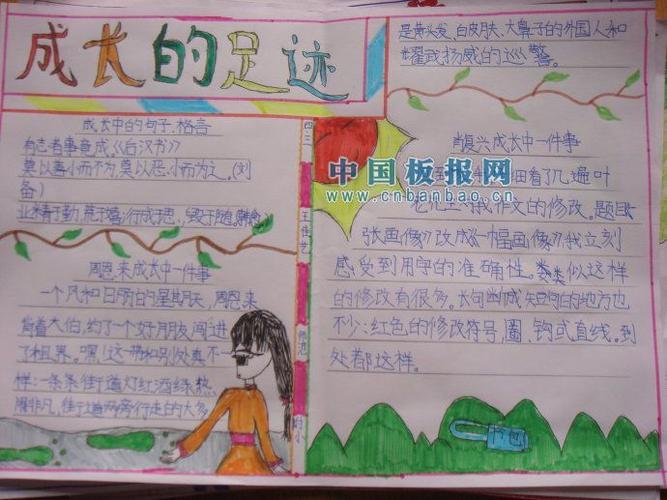 成长的足迹
成长中的句子、格言
有志者事竟成《后汉书》
莫以善小而不为,莫以恶小而为之。(刘
备)
业精于勤,荒于嬉;行成于思,毁于随。韩愈
周恩来成长中一件事
一个风和日丽的星期天,周恩来
背着大伯,约了一个好朋友闯进
了租界。嘿!这一带和别处真不一
样:一条条街道灯红酒绿,热
闹非凡,街道两旁行走的大多
四三
王佳艺
师范
附小
是黄头发、白皮肤、大鼻子的外国人和
耀武扬威的巡警。
肖复兴成长中一件事
细看了几遍叶
老先生对我作文的修改。题目
张画像》改成《一幅画像》,我立刻
感受到用字的准确性。类似这样
的修改有很多。长句变成短句的地方也
不少:红色的修改符号,圈、钩或直线。到
处都这样。
书包
中国板报网
www.cnbanbao.cn